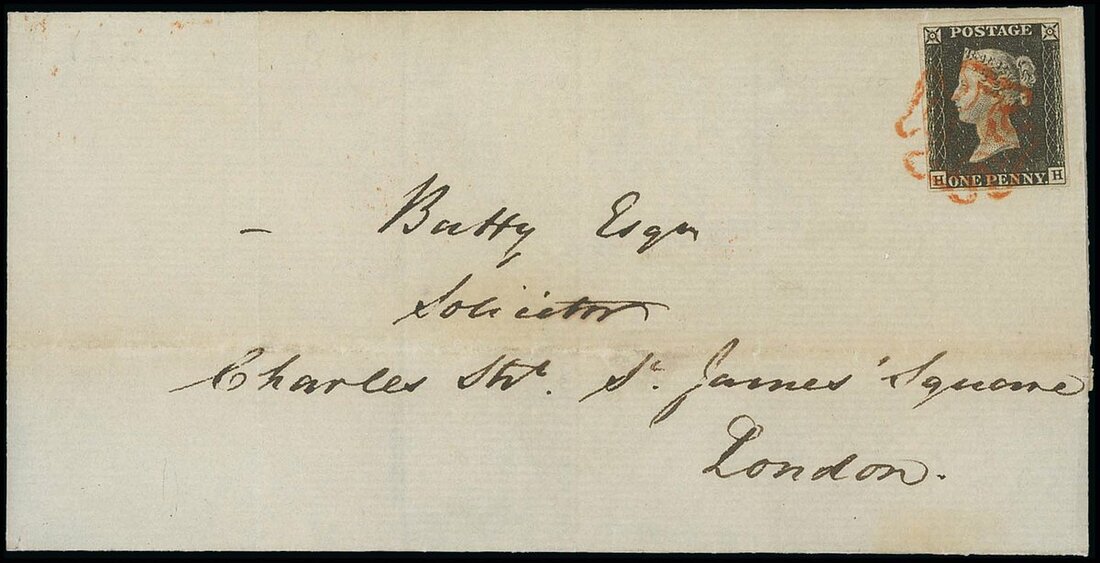 POSTAGE
H ONE PENNY. H
– Batty Esqr
Solicitor
Charles Strt. St. James' Square
London.